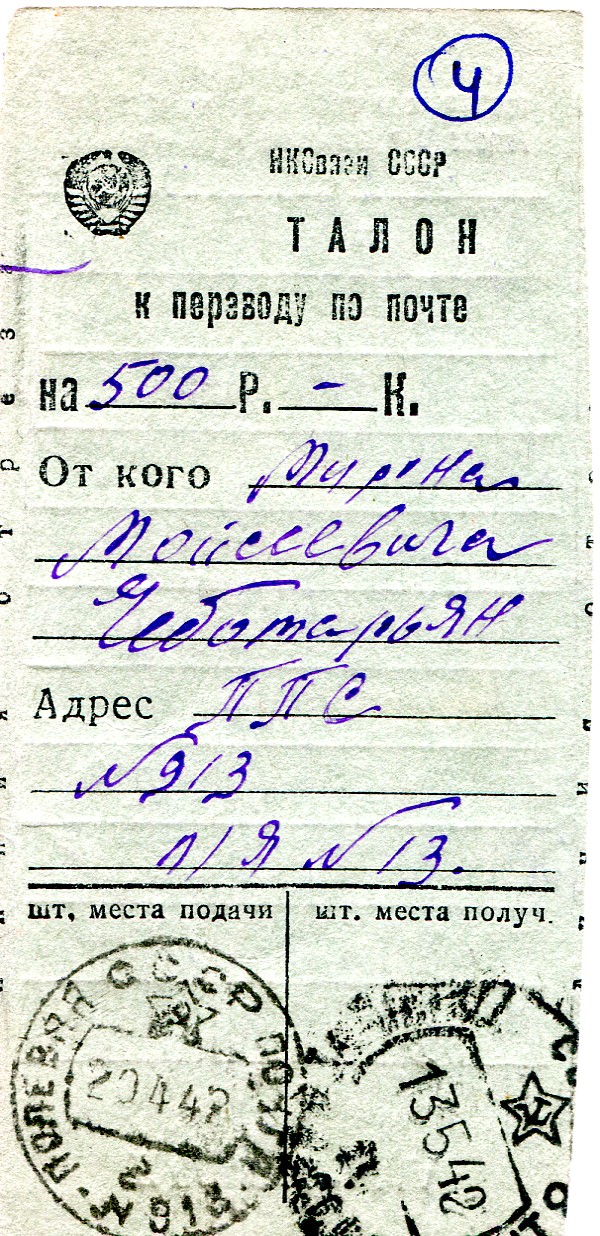 4
НКСвязи СССР
ТАЛОН
к переводу по почте
на 500 Р. - К.
От кого Мирона
Моисеевича
Чеботарьян
Адрес ППС
№ 913
п/я № 13.
шт. места подачи шт. места получ.
ПОЛЕВАЯ СССР ПОЧТА
20 4 42
2
№ 913
13 5 42